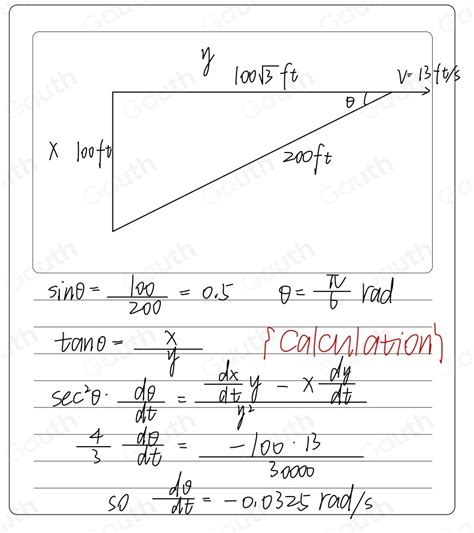 y
100√3 ft
V=13ft/s
θ
X 100ft
200ft
sinθ = 100/200 = 0.5 θ = π/6 rad
tanθ = x/y
{Calculation}
sec²θ · dθ/dt = (dx/dt y − x dy/dt)/y²
4/3 dθ/dt = −100·13/30000
so dθ/dt = −0.0325 rad/s
Gauth